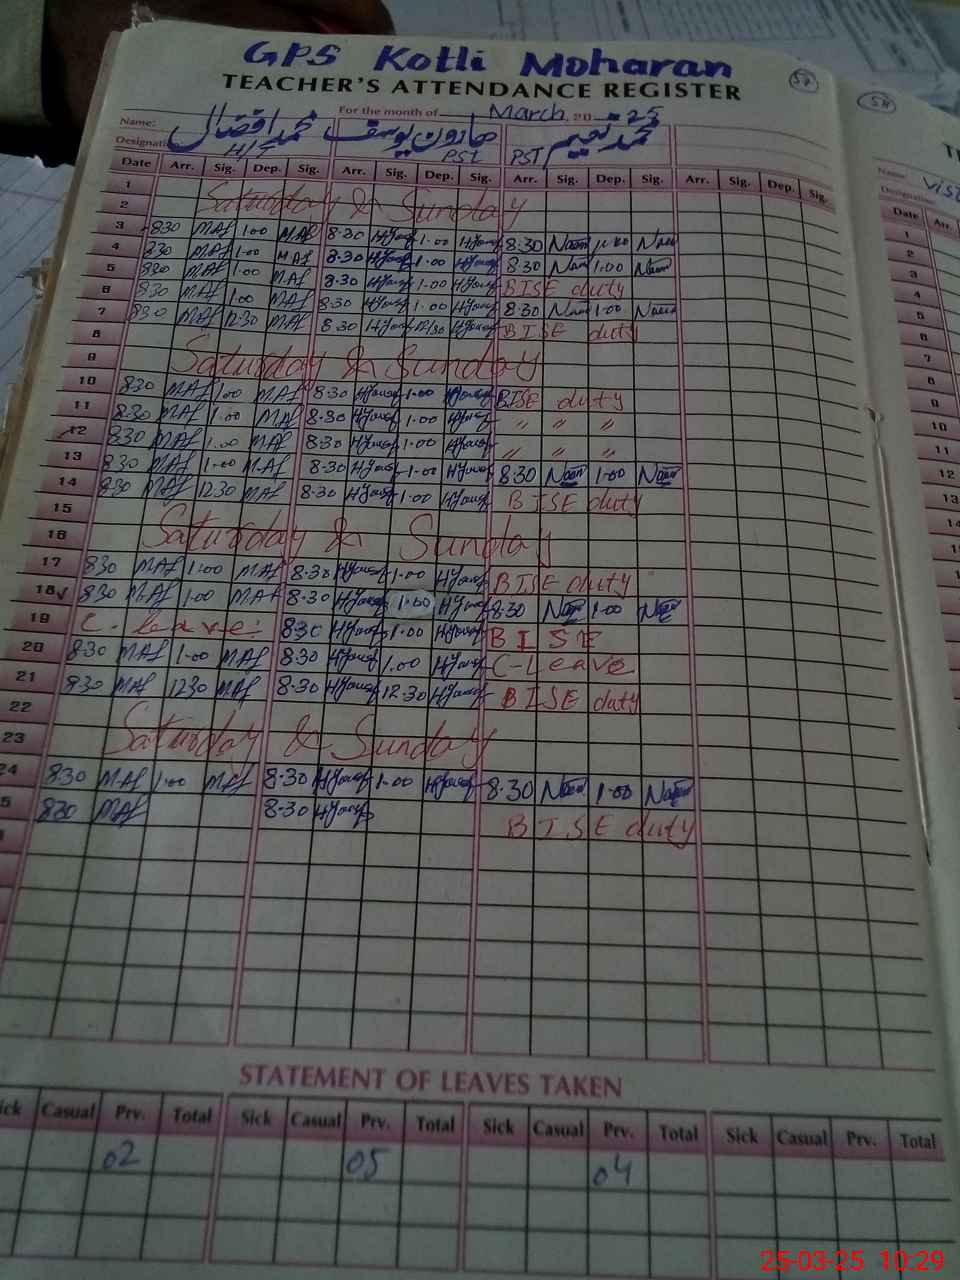 GPS Kotli Moharan
TEACHER'S ATTENDANCE REGISTER
57
58
For the month of March, 20 25
Name: محمد افضال ہارون یوسف محمد نعیم
Designation H/T PST PST
Date Arr. Sig. Dep. Sig. Arr. Sig. Dep. Sig. Arr. Sig. Dep. Sig. Arr. Sig. Dep. Sig.
1
2 Saturday & Sunday
3 830 MAf 1.00 MAf 8.30 HYousf 1.00 HYousf 8.30 Naem Naem
4 830 MAf 1.00 MAf 8.30 HYousf 1.00 HYousf 8.30 Naem 1.00 Naem
5 830 MAf 1.00 MAf 8.30 HYousf 1.00 HYousf BISE duty
6 830 MAf 1.00 MAf 8:30 HYousf 1.00 HYousf 8.30 Naem 1.00 Naem
7 830 MAf 12.30 MAf 8.30 HYousf 12/30 HYousf BISE duty
8
9 Saturday & Sunday
10 830 MAf 1.00 MAf 8.30 HYousf 1.00 HYousf BISE duty
11 830 MAf 1.00 MAf 8.30 HYousf 1.00 HYousf " " "
12 830 MAf 1.00 MAf 8.30 HYousf 1.00 HYousf " " "
13 830 MAf 1.00 MAf 8.30 HYousf 1.00 HYousf 8.30 Naem 1.00 Naem
14 830 MAf 1230 MAf 8.30 HYousf 1.00 HYousf BISE duty
15
16 Saturday & Sunday
17 830 MAf 1:00 MAf 8.30 HYousf 1.00 HYousf BISE duty
18 830 MAf 1.00 MAf 8.30 HYousf 1.00 HYousf 8.30 Naem 1.00 Naem
19 C. leave. 830 HYousf 1.00 HYousf BISE
20 8.30 MAf 1.00 MAf 8.30 HYousf 1.00 HYousf C-Leave
21 830 MAf 1230 MAf 8.30 HYousf 12.30 HYousf BISE duty
22
23 Saturday & Sunday
24 830 MAf 1.00 MAf 8.30 HYousf 1.00 HYousf 8.30 Naem 1.00 Naem
5 830 MAf 8.30 HYousf BISE duty
STATEMENT OF LEAVES TAKEN
ick Casual Prv. Total Sick Casual Prv. Total Sick Casual Prv. Total Sick Casual Prv. Total
02 05 04
Name:
Designation
Date
1
2
3
4
5
6
7
8
9
10
11
12
13
14
25-03-25 10:29